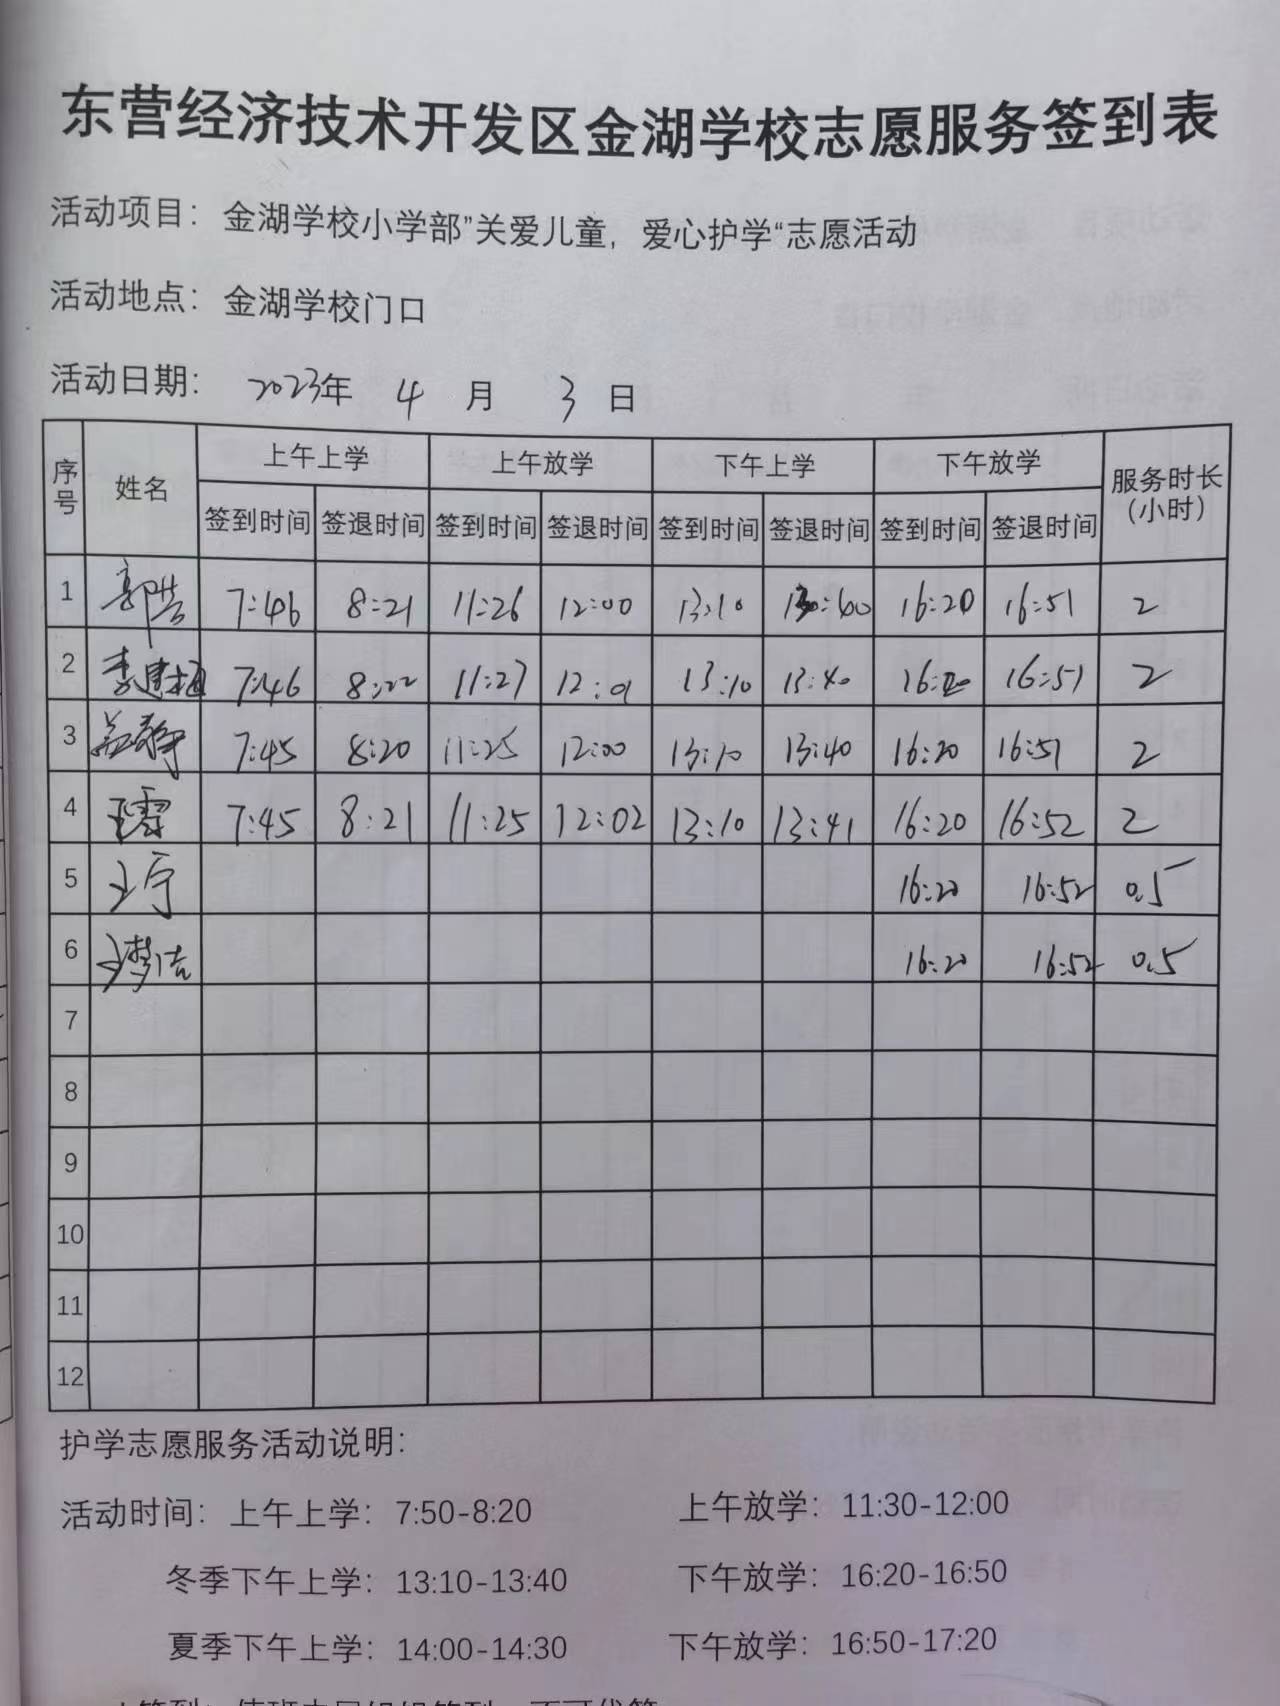 东营经济技术开发区金湖学校志愿服务签到表
活动项目：金湖学校小学部”关爱儿童，爱心护学“志愿活动
活动地点：金湖学校门口
活动日期：2023年 4 月 3 日
序号 姓名 上午上学 上午放学 下午上学 下午放学 服务时长（小时）
签到时间 签退时间 签到时间 签退时间 签到时间 签退时间 签到时间 签退时间
1 郭芸 7:46 8:21 11:26 12:00 13:10 16:20 16:51 2
2 7:46 8:22 11:27 12:01 13:10 13:40 16:20 16:51 2
3 7:45 8:20 11:25 12:00 13:10 13:40 16:20 16:51 2
4 7:45 8:21 11:25 12:02 13:10 13:41 16:20 16:52 2
5 王宁 16:20 16:52 0.5
6 王梦洁 16:20 16:52 0.5
7
8
9
10
11
12
护学志愿服务活动说明：
活动时间：上午上学：7:50-8:20 上午放学：11:30-12:00
冬季下午上学：13:10-13:40 下午放学：16:20-16:50
夏季下午上学：14:00-14:30 下午放学：16:50-17:20